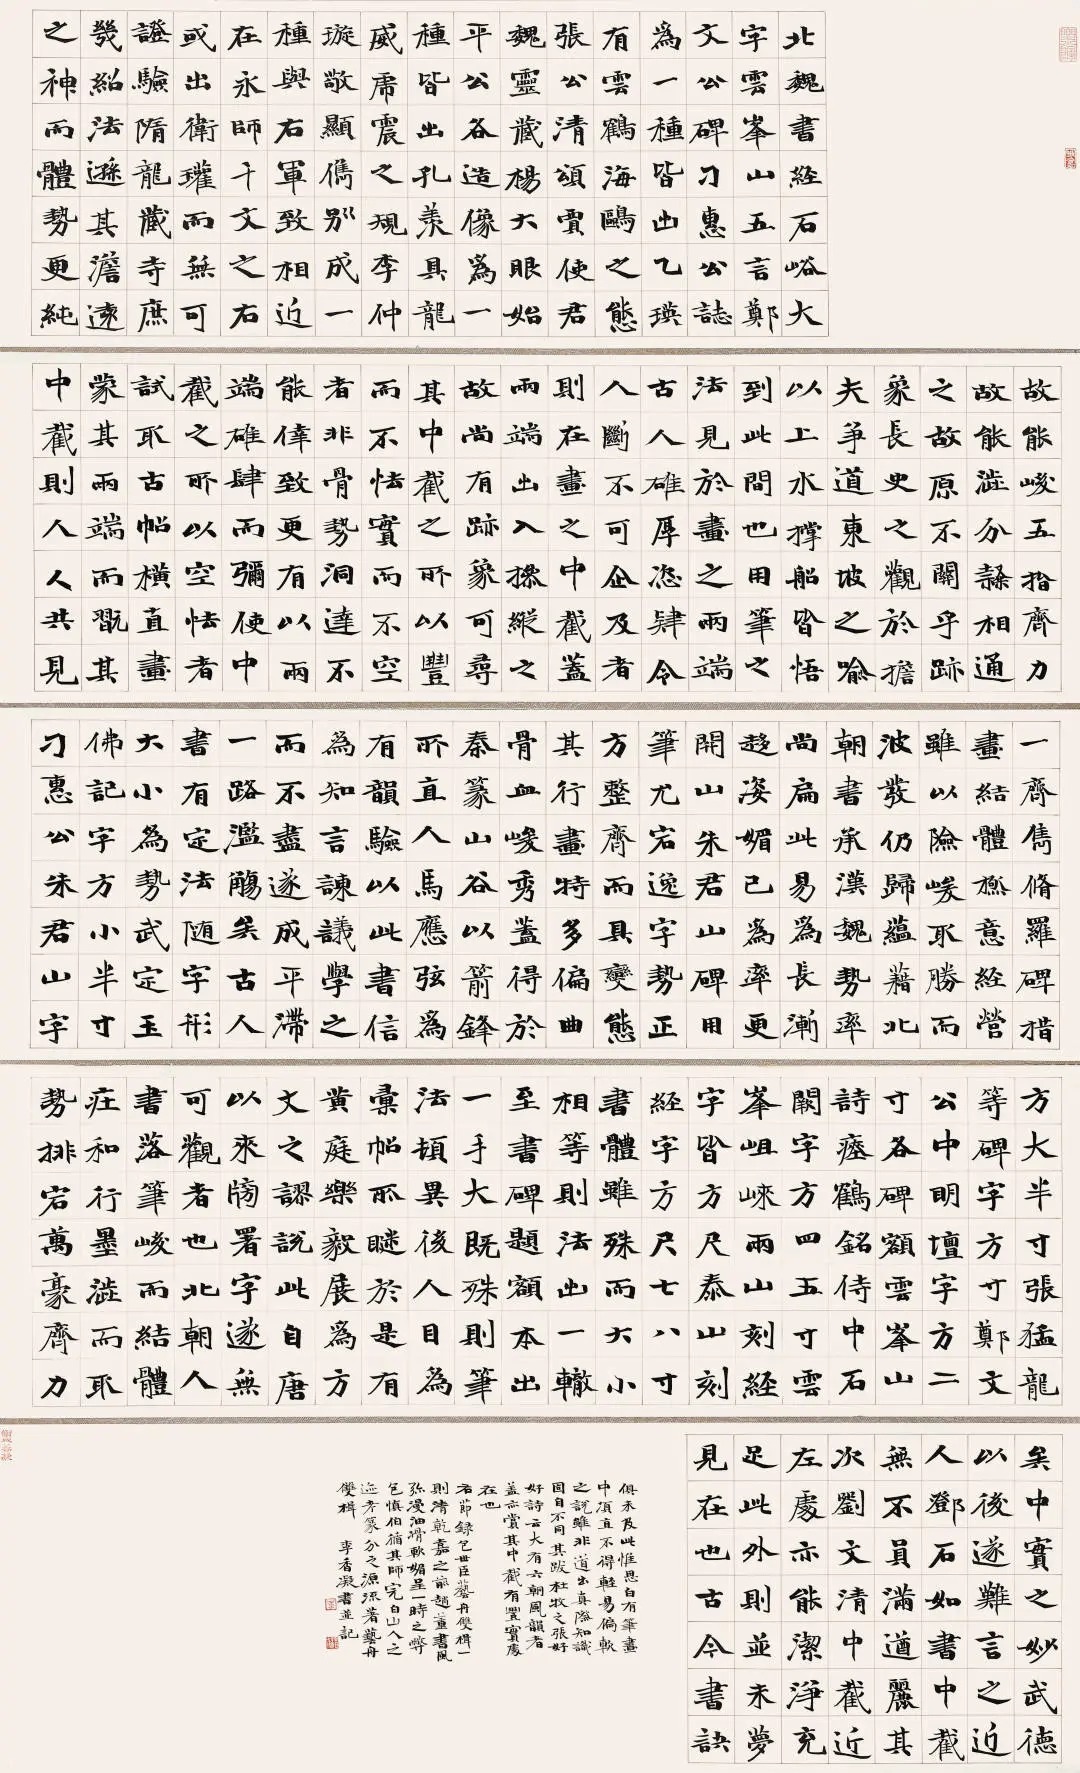 北魏書經石峪大
字雲峯山五言鄭
文公碑刁惠公誌
為一種皆出乙瑛
有雲鶴海鷗之態
張公清頌賈使君
魏靈藏楊大眼始
平公各造像為一
種皆出孔羨具龍
威虎震之規李仲
璇敬顯儁別成一
種與右軍致相近
在永師千文之右
或出衛瓘而無可
證驗隋龍藏寺庶
幾紹法遜其澹遠
之神而體勢更純
故能峻五指齊力
故能澁分隸相通
之故原不關乎跡
象長史之觀於擔
夫爭道東坡之喻
以上水撐船皆悟
到此間也用筆之
法見於畫之兩端
古人雄厚恣肆令
人斷不可企及者
則在畫之中截蓋
兩端出入操縱之
故尚有跡象可尋
其中截之所以豐
而不怯實而不空
者非骨勢洞達不
能倖致更有以兩
端雄肆而彌使中
截之所以空怯者
試取古帖橫直畫
蒙其兩端而翫其
中截則人人共見
一齊儁脩羅碑措
畫結體意經營
雖以險峻取勝而
波發仍歸蘊藉北
朝書承漢魏勢率
尚扁此易為長漸
趍姿媚已為率更
開山朱君山碑用
筆尤宕逸字勢正
方整齊而具變態
其行畫特多偏曲
骨血峻秀蓋得於
秦篆山谷以箭鋒
所直人馬應弦為
有韻驗以此書信
為知言諫議學之
而不盡遂成平滯
一路濫觴矣古人
書有定法隨字形
大小為勢武定玉
佛記字方小半寸
刁惠公朱君山字
方大半寸張猛龍
等碑字方寸鄭文
公中明壇字方二
寸各碑額雲峯山
詩瘞鶴銘侍中石
闕字方四五寸雲
峯岨崍兩山刻經
字皆方尺泰山刻
經字方尺七八寸
書體雖殊而大小
相等則法出一轍
至書碑題額本出
一手大既殊則筆
法頓異後人目為
彙帖所瞇於是有
黃庭樂毅展為方
文之謬說此自唐
以來牓署字遂無
可觀者也北朝人
書落筆峻而結體
莊和行墨澁而取
勢排宕萬豪齊力
矣中實之妙武德
以後遂難言之近
人鄧石如書中截
無不員滿遒麗其
次劉文清中截近
左處亦能潔淨充
足此外則並未夢
見在也古今書訣
俱未及此惟思白有筆畫
中須直不得輕易偏軟
之說雖非道出真際知識
固自不同其跋杜牧之張好
好詩云大有六朝風韻者
蓋亦賞其中截有豐實處
在也
右節錄包世臣藝舟雙楫一
則清乾嘉之前趙董書風
弥漫油滑軟媚呈一時之弊
包慎伯循其師完白山人之
迹考篆分之源流著藝舟
雙楫 李香凝書並記